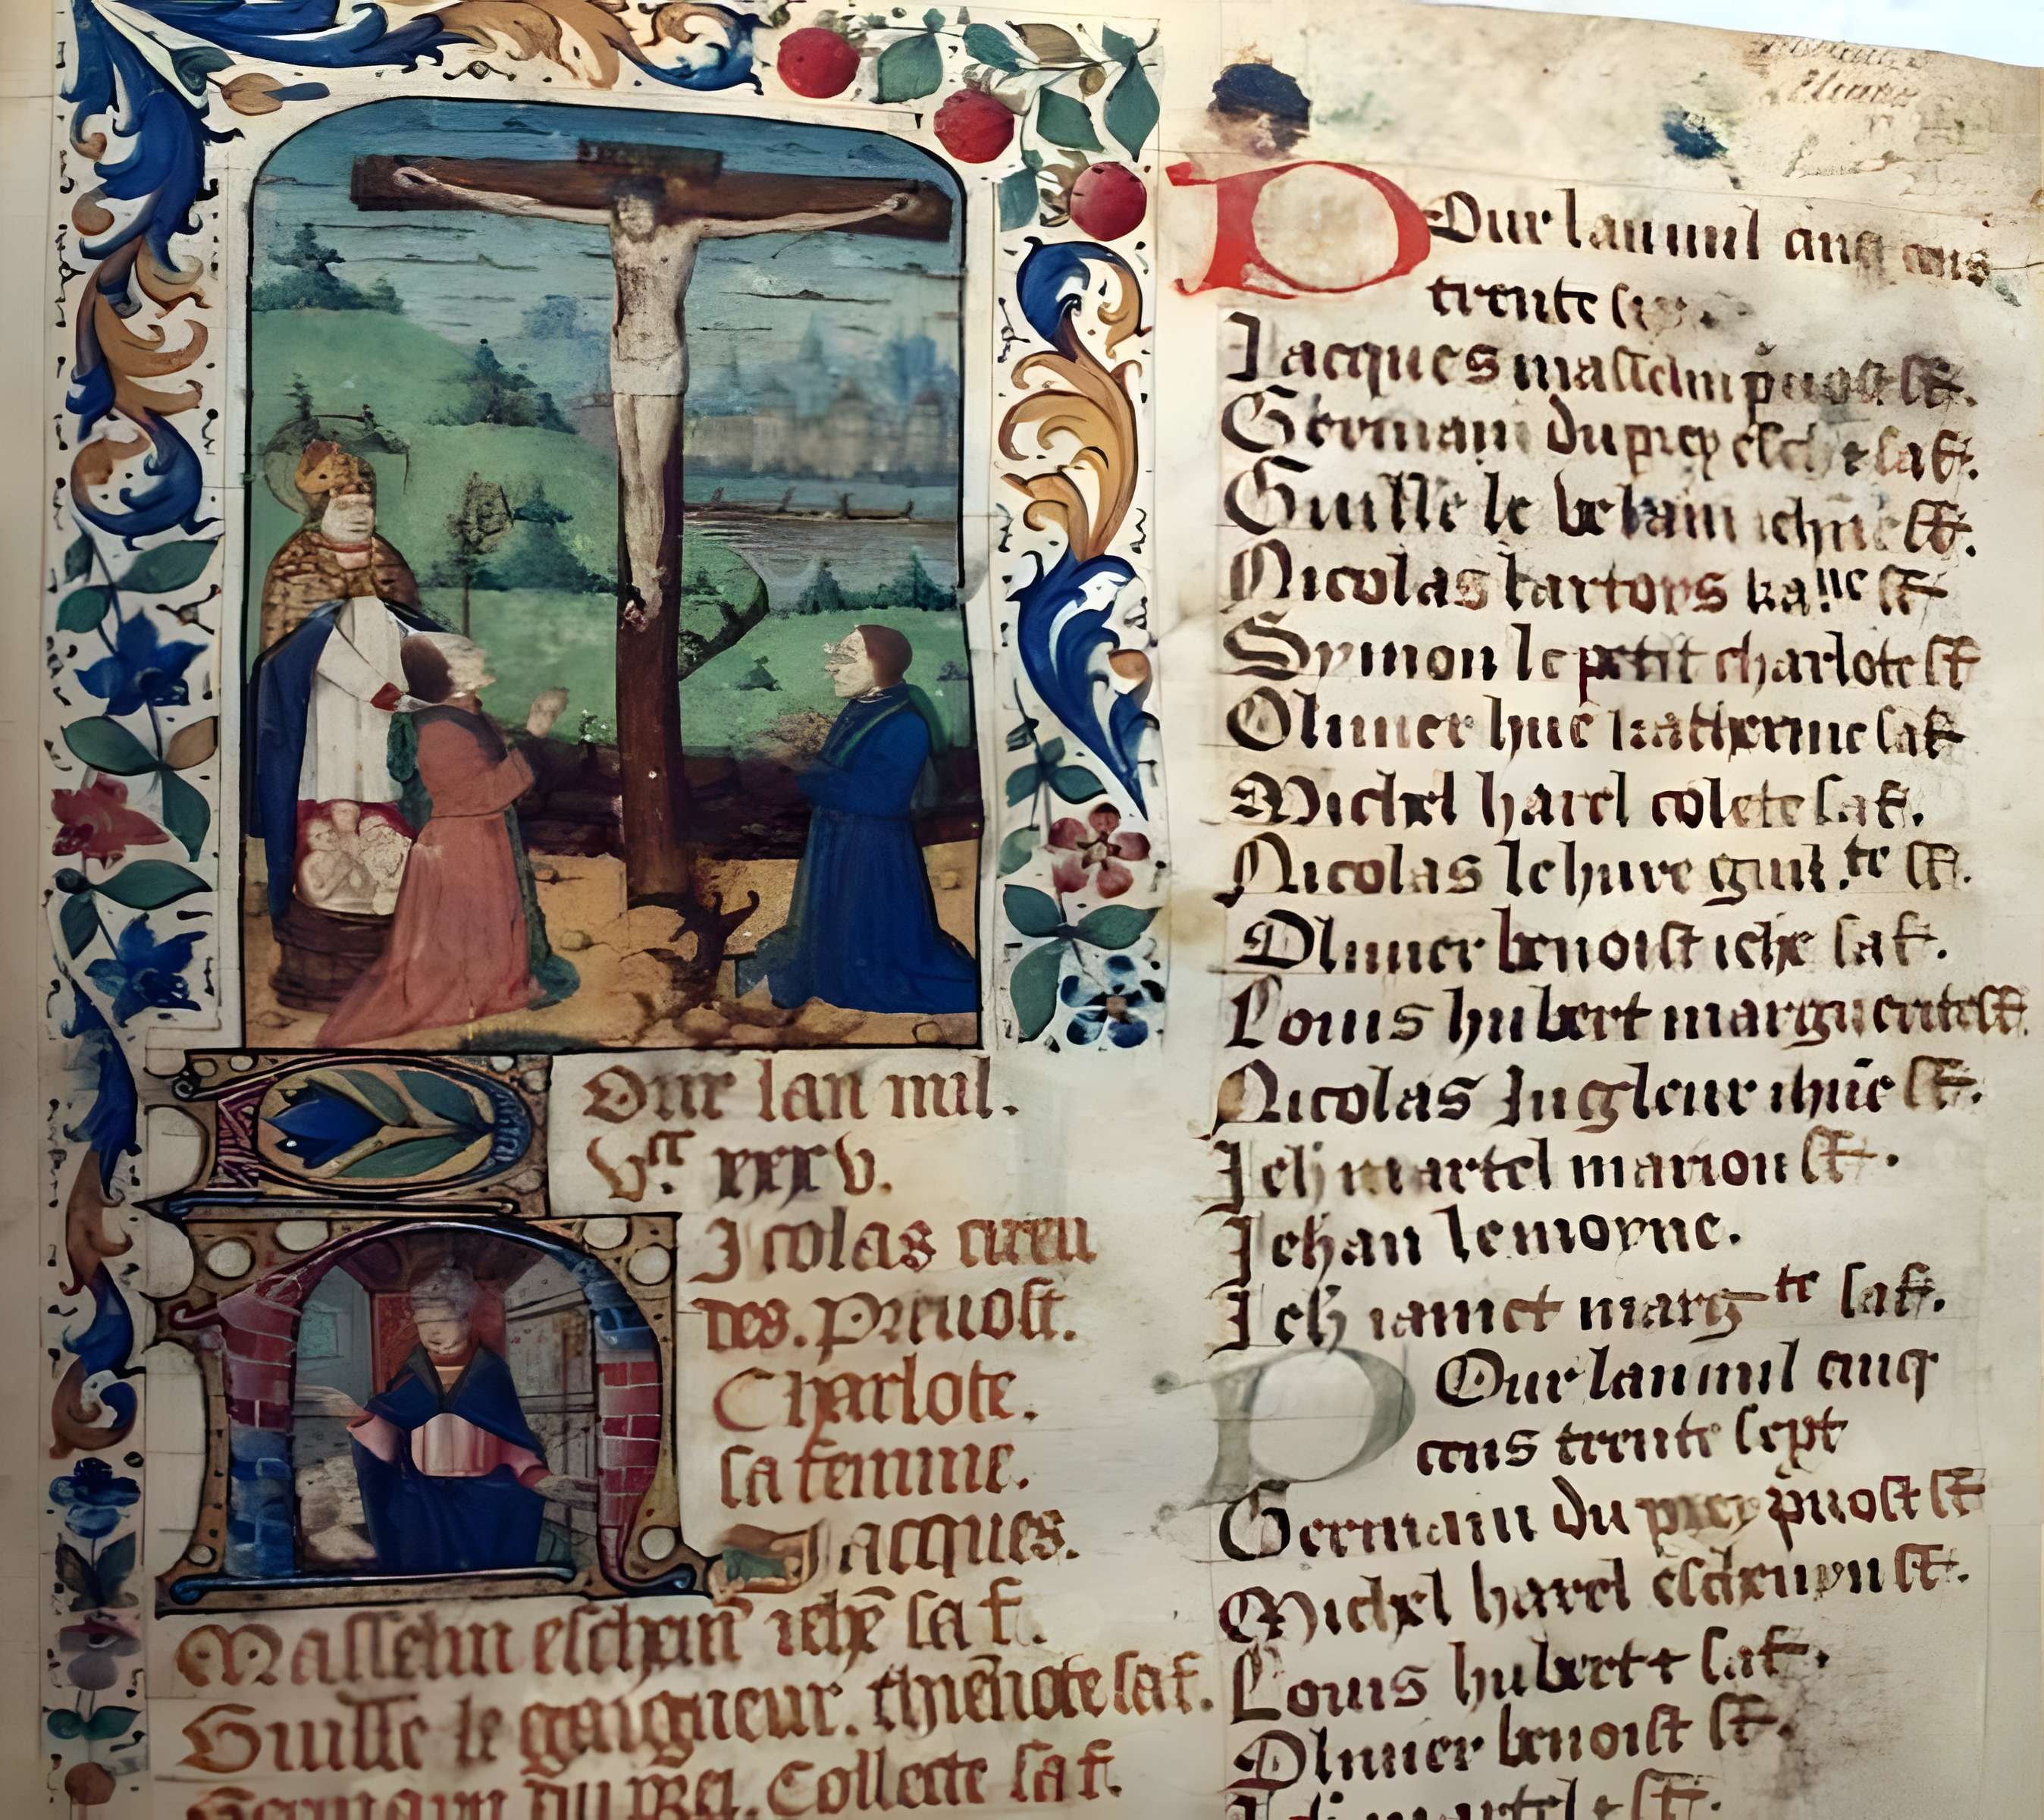 Pour lan mil.
Vct xxxv.
Nicolas cureu
des. Preuost.
Charlote.
sa femme.
Jacques.
Masselin eschevin iehe sa f.
Guille le gaigneur. thienote sa f.
Germain du prei. Collecte sa f.
POur lan mil cinq cens
trente six.
Jacques masselin puost sf.
Germain du prey esch sa f.
Guille le sf.
Nicolas sf
Symon le petit charlote sf
Oliuier hue katherine sa f
Michel harel colete sa f.
Nicolas lehure guil.te sf.
Oliuier benoist iehe sa f.
Louis hubert marguerite sf.
Nicolas Jugleur ihne sf.
Jeh martel marion sf.
Jehan lemoyne.
Jeh iamet marg te sa f.
POur lan mil cinq
cens trente sept
Germain du prey puost sf
Michel harel escheuyn sf.
Louis hubert + sa f.
Oliuier benoist sf.
Jeh martel sf.